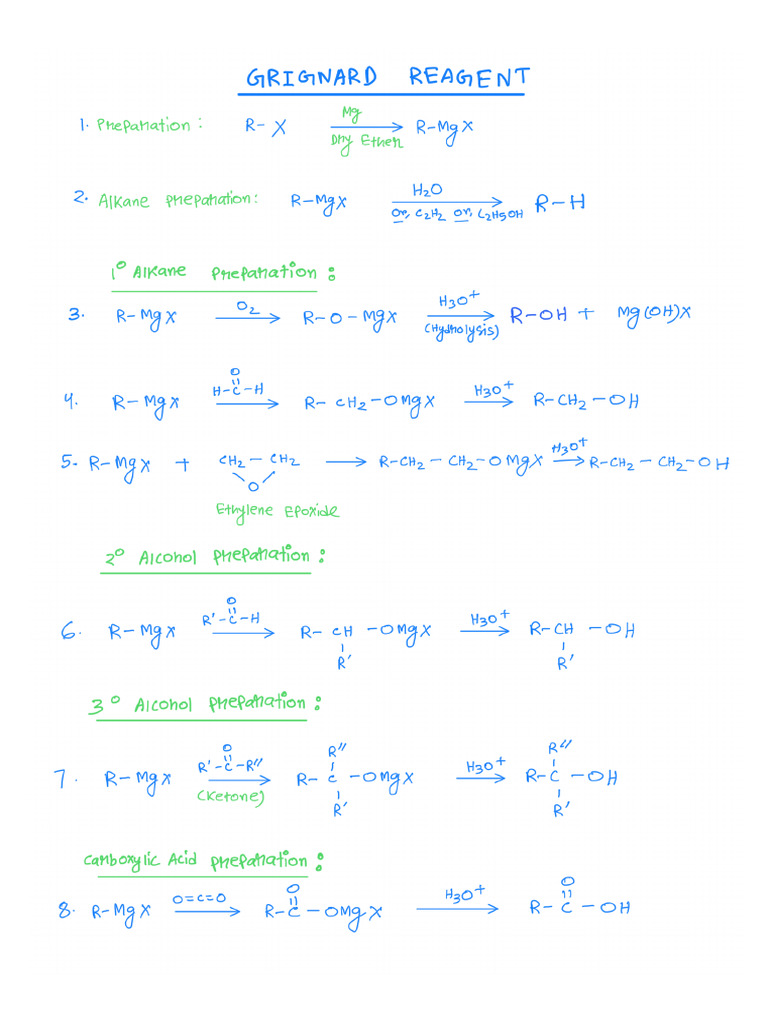 GRIGNARD REAGENT
1. Preparation: R-X Mg Dry Ether → R-MgX
2. Alkane preparation: R-MgX H2O or, C2H2 or, C2H5OH → R-H
1° Alkane preparation:
3. R-MgX O2 → R-O-MgX H3O+ (Hydrolysis) → R-OH + Mg(OH)X
4. R-MgX H-C(=O)-H → R-CH2-OMgX H3O+ → R-CH2-OH
5. R-MgX + CH2-CH2 O → R-CH2-CH2-OMgX H3O+ → R-CH2-CH2-OH
Ethylene Epoxide
2° Alcohol preparation:
6. R-MgX R'-C(=O)-H → R-CH(R')-OMgX H3O+ → R-CH(R')-OH
3° Alcohol preparation:
7. R-MgX R'-C(=O)-R'' (Ketone) → R-C(R'')(R')-OMgX H3O+ → R-C(R'')(R')-OH
Carboxylic Acid preparation:
8. R-MgX O=C=O → R-C(=O)-OMgX H3O+ → R-C(=O)-OH